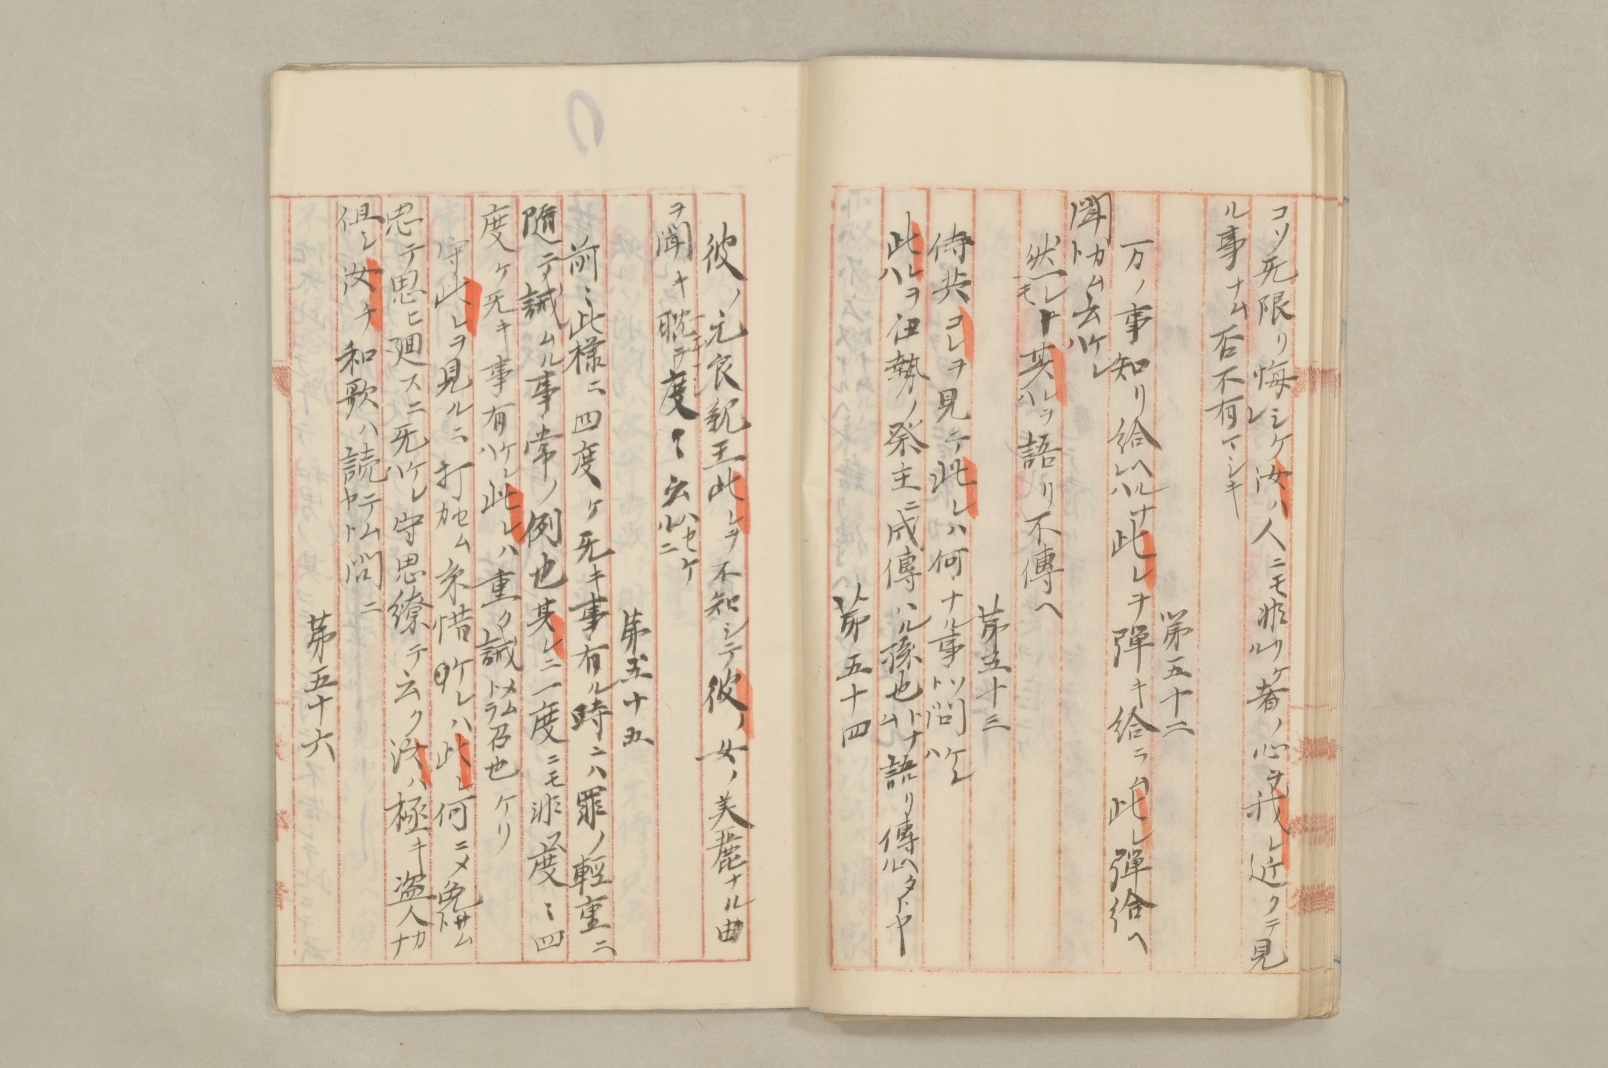 コソ死限リ悔シケレ汝ハ人ニモ非リケル者ノ心ヲ我レ近クテ見
ル事ナム否不有マシキ
第五十二
万ノ事知リ給ヘルナレハ此レヲ弾キ給ラム此レ弾給ヘ
聞カムト云ケレハ
然レトモ其レハヲ語リ不傳ヘ
第五十三
侍共コレヲ見テ此レハ何ナル事ソト問ケレハ
此レハヲ伊勢ノ祭主ニ成傳ハル孫也トナム語リ傳ヘタルトヤ
第五十四
彼ノ元良親王此レヲ不知シテ彼ノ女ノ美麗ナル由
ヲ聞キ耽テ度〻云ハセケルニ
第五十五
前〻此様ニ四度ケ死キ事有ル時ニハ罪ノ輕重ニ
随テ誡ムル事常ノ例也其レニ一度ニモ非ス度〻四
度ケ死キ事有ケレハ此レハ重ク誡メムトラ召也ケリ
守此レヲ見ルニ打カセム糸惜ケレハ此レ何ニメ免サムト
思テ思ヒ廻スニ死ケレハ守思繚テ云ク汝ハ極キ盗人カナ
但シ汝チ和歌ハ読テムヤト問ニ
第五十六